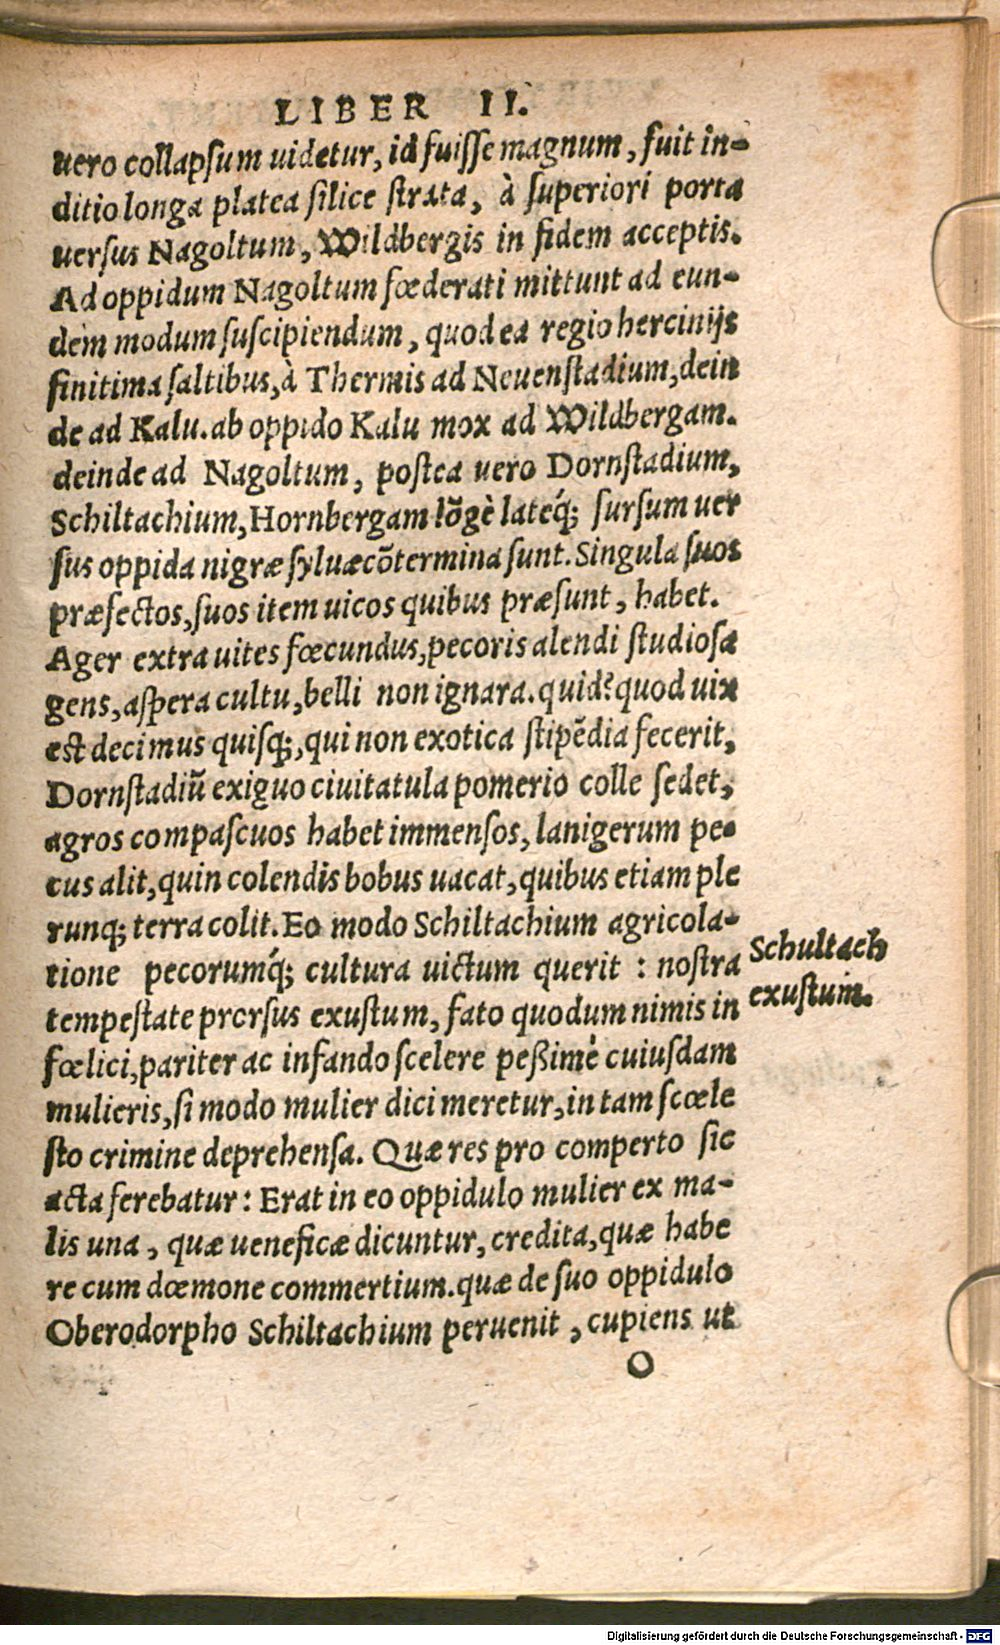 LIBER II.
uero collapsum uidetur, id fuisse magnum, fuit in-
ditio longa platea silice strata, à superiori porta
uersus Nagoltum, Wildbergis in fidem acceptis.
Ad oppidum Nagoltum fœderati mittunt ad eun-
dem modum suscipiendum, quod ea regio hercinijs
finitima saltibus, à Thermis ad Neuenstadium, dein
de ad Kalu. ab oppido Kalu mox ad Wildbergam.
deinde ad Nagoltum, postea uero Dornstadium,
Schiltachium, Hornbergam lõgè lateq́; sursum uer
sus oppida nigræ syluæ cõtermina sunt. Singula suos
præfectos, suos item uicos quibus præsunt, habet.
Ager extra uites fœcundus, pecoris alendi studiosa
gens, aspera cultu, belli non ignara. quid? quod uix
est decimus quisq;, qui non exotica stipẽdia fecerit,
Dornstadiũ exiguo ciuitatula pomerio colle sedet,
agros compascuos habet immensos, lanigerum pe-
cus alit, quin colendis bobus uacat, quibus etiam ple
runq; terra colit. Eo modo Schiltachium agricola-
tione pecorumq́; cultura uictum querit : nostra
Schultach
tempestate prorsus exustum, fato quodum nimis in
exustum.
fœlici, pariter ac infando scelere peßimè cuiusdam
mulieris, si modo mulier dici meretur, in tam scœle
sto crimine deprehensa. Quæ res pro comperto sic
acta ferebatur : Erat in eo oppidulo mulier ex ma-
lis una, quæ ueneficæ dicuntur, credita, quæ habe
re cum dœmone commertium. quæ de suo oppidulo
Oberodorpho Schiltachium peruenit, cupiens ut
O
Digitalisierung gefördert durch die Deutsche Forschungsgemeinschaft - DFG